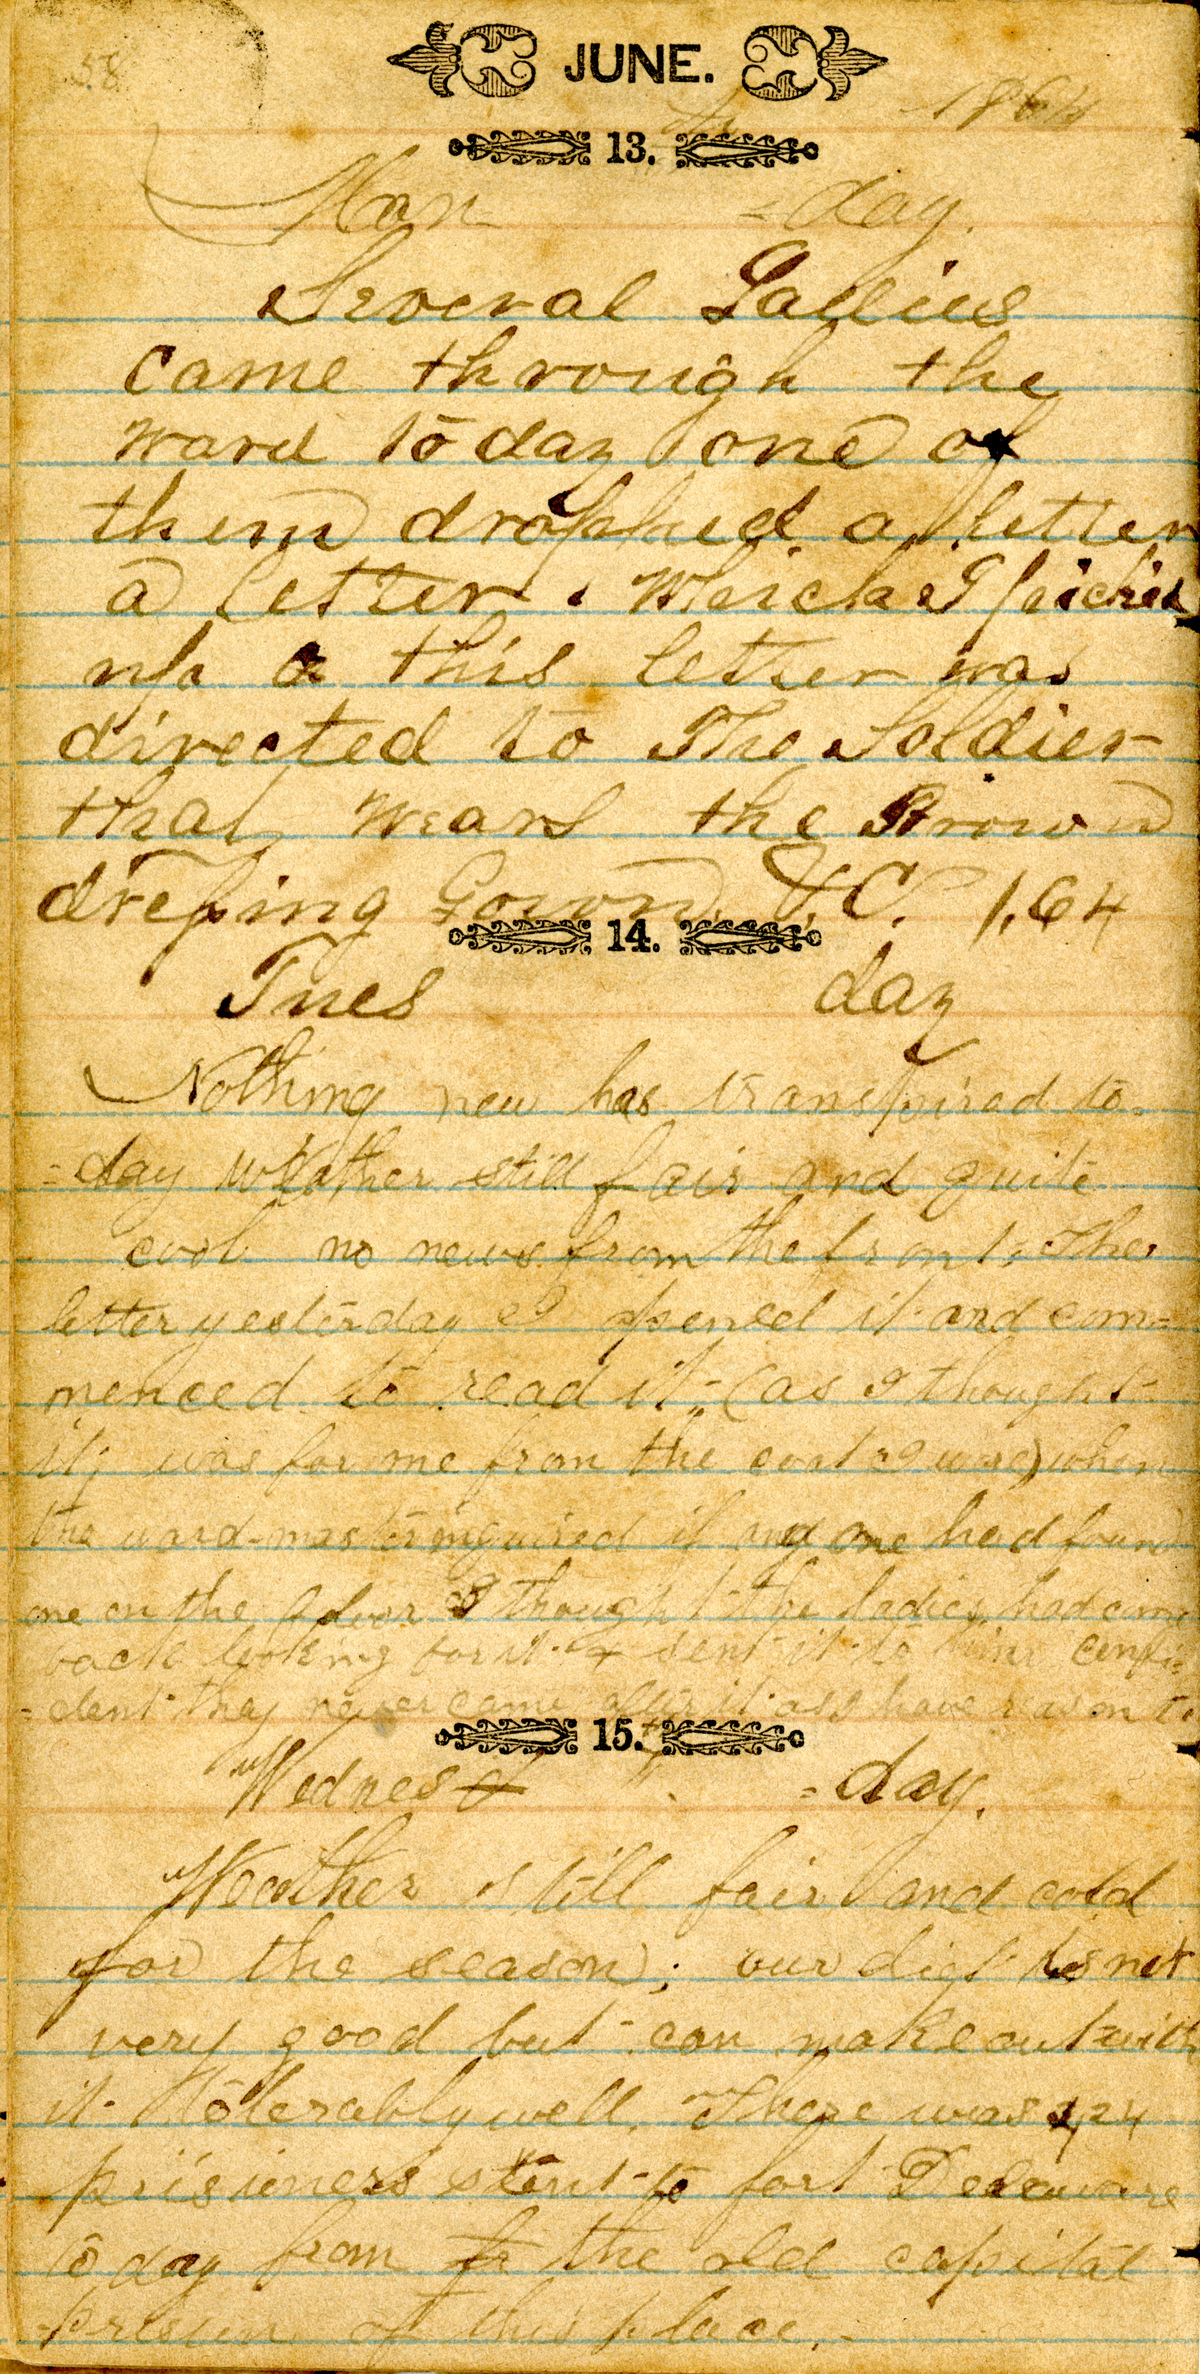 58
JUNE.
1864
13.
Mon = day.
Several Ladies
came through the
ward to day one of
them droped a letter
a letter. Which I picked
up this letter was
directed to The Soldier
that wears the Brown
dressing Gown. &C. 1,64
14.
Tues day
Nothing new has transpired to-
=day Weather still fair and quite
cool no news from the front. The
letter yesterday I opened it and com=
menced to read it (as I thought
it was for me from the coat I wore) when
the ward-master inquired if any one had found
one on the floor I thought the ladies had come
back looking for it & sent it to him confi=
=dent they never came after it as I have reason to
15.
Wednes = day.
Weather still fair and cold
for the season; our diet is not
very good but can make out with
it tolerably well. There was 424
prisioners sent to fort Delaware
to day from fr the old capital
prison of this place.